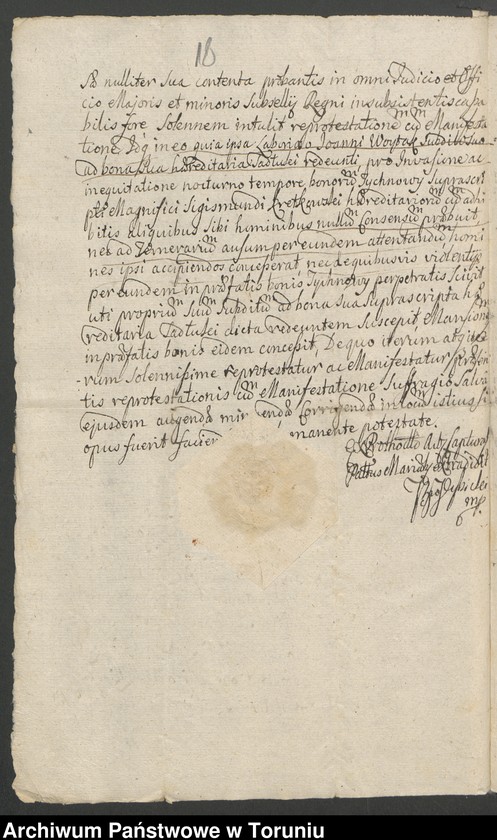 18
nulliter sua contenta probantis in omni Judicio et Offi
cio Majoris et minoris Subsellij Regni insubsistentis capa
bilis fore Solennem intulit reprotestationem cum Manifesta
tione Idq in eo quia ipsa Laborioso Joanni Woytak Subdito suo
ad bona sua hæreditaria Tadłusei redeunti, pro Invasione ac
inequitatione nocturno tempore, bonorum Tychnowy suprascript
per Magnifici Sigismundi Kretkowski hæreditariorum cum adhi
bitis aliquibus sibi hominibus nullum Consensum præbuit,
nec ad ausum per eundem attentandum homi
nes ipsi accipiendos concesserat, nec de quibusvis violentijs
per eundem in præfatis bonis Tychnowy perpetratis scivit
uti proprium suum Subditum ad bona sua suprascripta hæ
reditaria Tadłusei dicta redeuntem suscepit, Mansionem
in præfatis bonis eidem concessit, De quo iterum atq ite
rum solennissime reprotestatur ac Manifestatur, præsen
tis reprotestationis cum Manifestatione Suffragio Salva
ejusdem augendæ minuendæ Corrigendæ in locum istius si
opus fuerit manente potestate.
Ex Protocollo
mp
Archiwum Państwowe w Toruniu